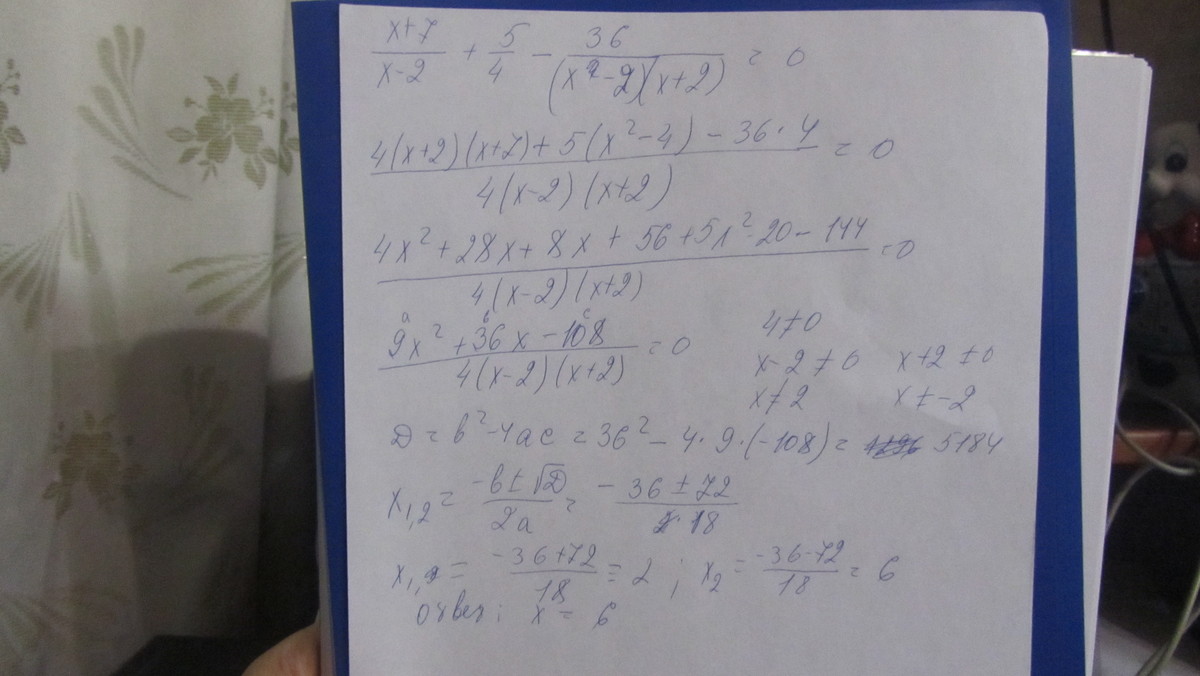 x+7/x-2 + 5/4 - 36/(x-2)(x+2) = 0
4(x+2)(x+7)+5(x²-4)-36·4/4(x-2)(x+2) = 0
4x²+28x+8x+56+5x²-20-144/4(x-2)(x+2) = 0
a b c
9x²+36x-108/4(x-2)(x+2) = 0
4≠0
x-2≠0 x+2≠0
x≠2 x≠-2
D = b²-4ac = 36²-4·9·(-108) = 5184
x1,2 = -b±√D/2a = -36±72/18
x1 = -36+72/18 = 2 ; x2 = -36-72/18 = 6
ответ: x = 6